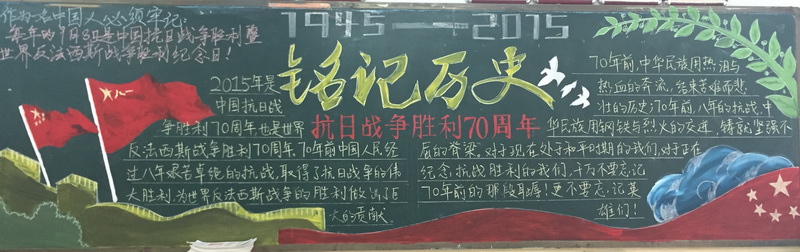 作为一名中国人必须牢记:
每年的9月3日是中国抗日战争胜利暨
世界反法西斯战争胜利纪念日!
1945—2015
铭记历史
抗日战争胜利70周年
2015年是
中国抗日战
争胜利70周年,也是世界
反法西斯战争胜利70周年,70年前中国人民经
过八年艰苦卓绝的抗战,取得了抗日战争的伟
大胜利,为世界反法西斯战争的胜利做出了巨
大的贡献。
70年前,中华民族用热泪与
热血的奔流,结束苦难而悲
壮的历史;70年前,八年的抗战,中
华民族用钢铁与烈火的交迸,铸就坚强不
屈的脊梁,对于现在处于和平时期的我们,对于正在
纪念抗战胜利的我们,千万不要忘记
70年前的那段耻辱!更不要忘记英
雄们!
八一